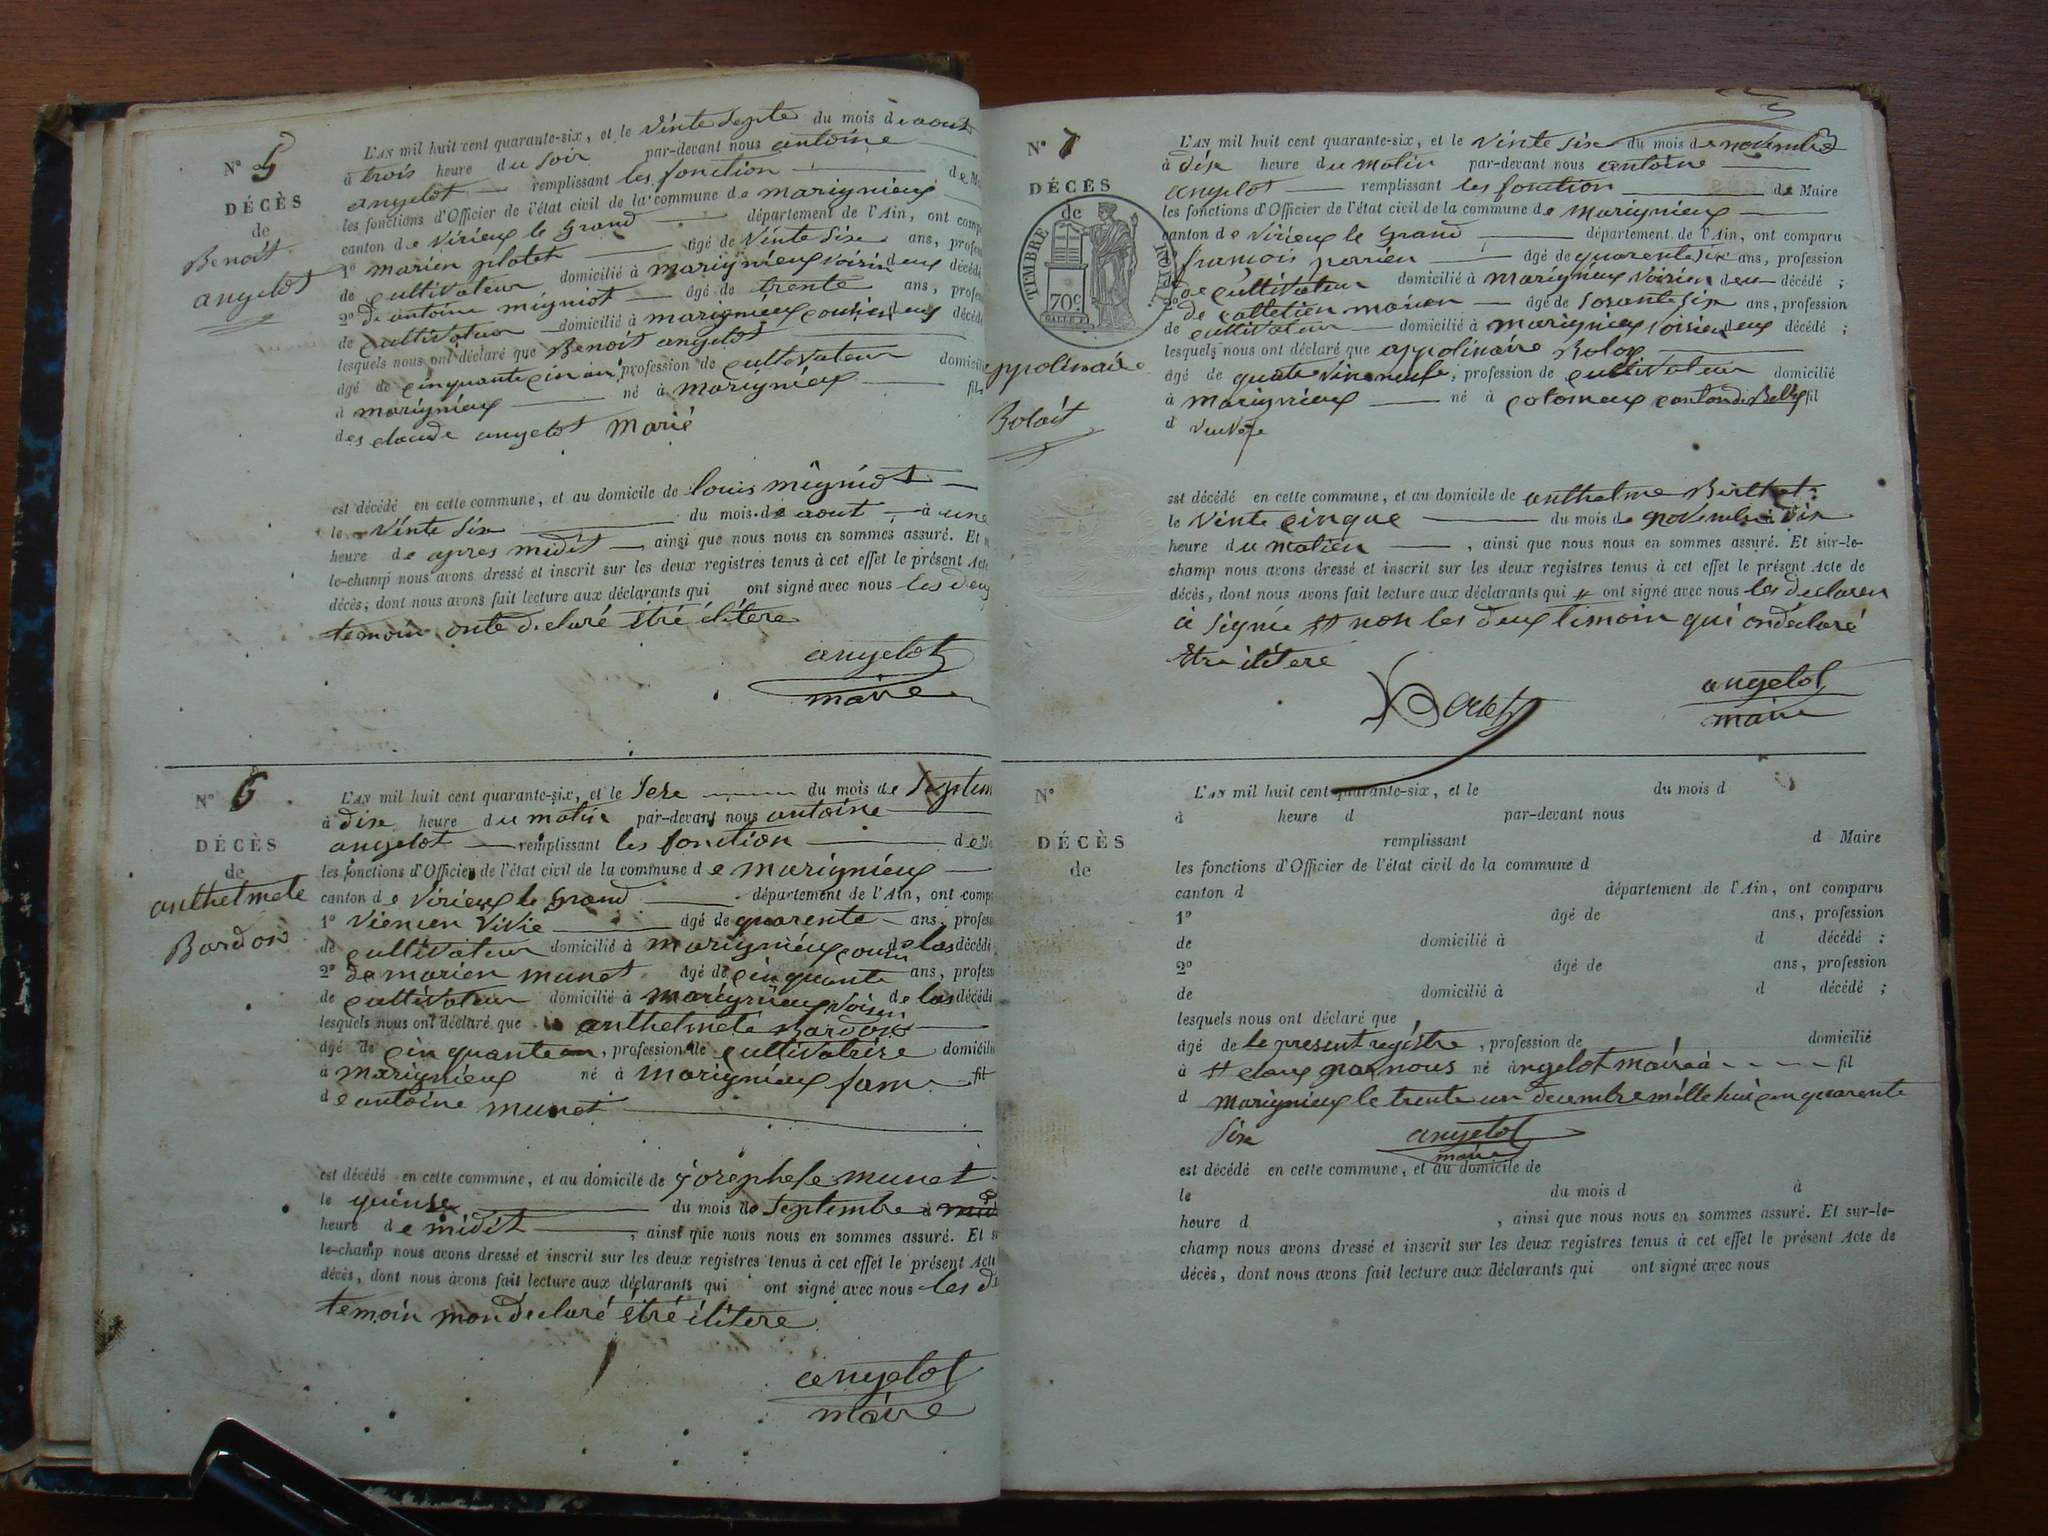 N° 5
DÉCÈS
de
Benoit
angelot
L'AN mil huit cent quarante-six, et le vinte septe du mois d aout
à trois heure du soir par-devant nous antoine
angelot remplissant les fonction de
les fonctions d'Officier de l'état civil de la commune de marignieux
canton de virieux le grand département de l'Ain, ont
1° marien âgé de vinte six ans,
de cultivateur domicilié à marignieux voisin deux décédé
2° de antoine migniot âgé de trente ans,
de cultivateur domicilié à marignieux deux décédé
lesquels nous ont déclaré que Benoit angelot
âgé de cinquante cin an profession de cultivateur
à marignieux né à marignieux fils
des claude angelot Marié
est décédé en cette commune, et au domicile de louis migniot
le vinte six du mois de aout à une
heure de apres midit ainsi que nous nous en sommes assuré. Et
le-champ nous avons dressé et inscrit sur les deux registres tenus à cet effet le présent Acte
décès; dont nous avons fait lecture aux déclarants qui ont signé avec nous les deux
temoin onte declaré étré ilitere
angelot
maire
N° 6
DÉCÈS
de
anthelmete
Bardon
L'AN mil huit cent quarante-six, et le sese du mois de
à dix heure du matin par-devant nous antoine
angelot remplissant les fonction de
les fonctions d'Officier de l'état civil de la commune de marignieux
canton de virieux le grand département de l'Ain, ont
1° vivie âgé de quarente ans,
de cultivateur domicilié à marignieux cousin de las décédé
2° de marien munet âgé de cinquante ans,
de cultivateur domicilié à marignieux voisin de las décédé
lesquels nous ont déclaré que anthelmete Bardon
âgé de cinquante an, profession de cultivatrise
à marignieux né à marignieux fam fil
de antoine munet
est décédé en cette commune, et au domicile de munet
le quinse du mois de septembre à
heure de midit, ainsi que nous nous en sommes assuré. Et
le-champ nous avons dressé et inscrit sur les deux registres tenus à cet effet le présent Acte
décès, dont nous avons fait lecture aux déclarants qui ont signé avec nous les
temoin mon declaré étré ilitere
angelot
maire
N° 7
DÉCÈS
de
TIMBRE ROYAL
70c
ppolinaire
Bolait
L'AN mil huit cent quarante-six, et le vinte six du mois de novembre
à dix heure du matin par-devant nous antoine
angelot remplissant les fonction de Maire
les fonctions d'Officier de l'état civil de la commune de marignieux
canton de virieux le grand département de l'Ain, ont comparu
françois perrien âgé de quarente six ans, profession
de cultivateur domicilié à marignieux voisien deu décédé ;
2° de âgé de sosante six ans, profession
de cultivateur domicilié à marignieux voisien deux décédé ;
lesquels nous ont déclaré que appolinaire
âgé de quatre vin neufe, profession de cultivateur domicilié
à marignieux né à colomeux canton de Belley fil
d veuvefe
est décédé en cette commune, et au domicile de anthelme Birthet
le vinte cinque du mois de novembre à dix
heure du matien, ainsi que nous nous en sommes assuré. Et sur-le-
champ nous avons dressé et inscrit sur les deux registres tenus à cet effet le présent Acte de
décès, dont nous avons fait lecture aux déclarants qui # ont signé avec nous les declaren
à signée # non les deux timoin qui on déclaré
être ilitere
angelot
maire
N°
DÉCÈS
de
L'AN mil huit cent quarante-six, et le du mois d
à heure d par-devant nous
remplissant d Maire
les fonctions d'Officier de l'état civil de la commune d
canton d département de l'Ain, ont comparu
1° âgé de ans, profession
de domicilié à d décédé ;
2° âgé de ans, profession
de domicilié à d décédé ;
lesquels nous ont déclaré que
âgé de le present registre, profession de domicilié
à # claux par nous né à ngelot maire à fil
d marignieux le trente un decembre mille hui cen quarente
six angelot
maire
est décédé en cette commune, et au domicile de
le du mois d à
heure d , ainsi que nous nous en sommes assuré. Et sur-le-
champ nous avons dressé et inscrit sur les deux registres tenus à cet effet le présent Acte de
décès, dont nous avons fait lecture aux déclarants qui ont signé avec nous